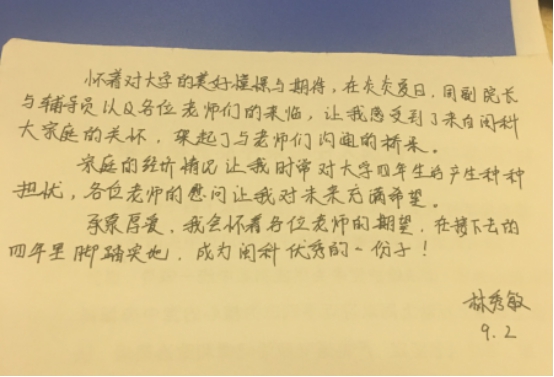 怀着对大学的美好憧憬与期待，在炎炎夏日，同副院长
与辅导员以及各位老师们的来临，让我感受到了来自闽科
大家庭的关怀，架起了与老师们沟通的桥梁。
家庭的经济情况让我时常对大学四年生活产生种种
担忧，各位老师的慰问让我对未来充满希望。
承蒙厚爱，我会怀着各位老师的期望，在接下去的
四年里脚踏实地，成为闽科优秀的一份子！
林秀敏
9.2